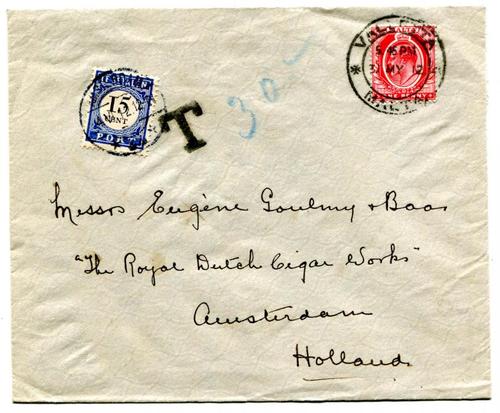 VALLETTA
5 15 PM
MY 12
MALTA
15
CENT
PORT
T
30
Messrs Eugène Goulmy & Baar
"The Royal Dutch Cigar Works"
Amsterdam
Holland